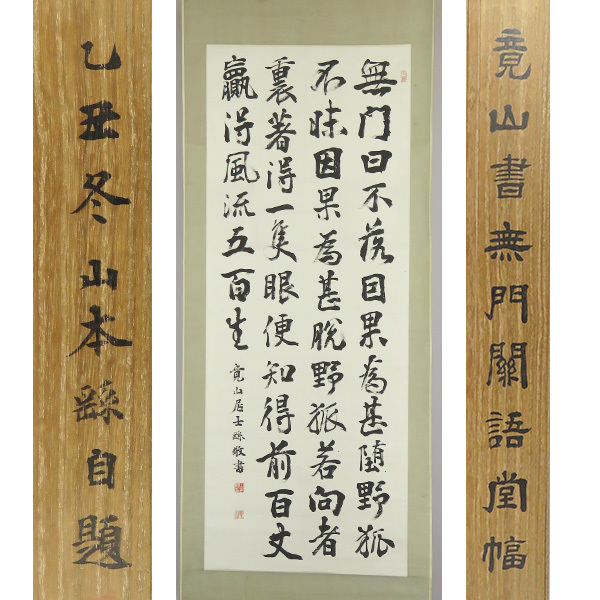 竟山書無門關語堂幅
無门曰不落因果為甚墮野狐
不昧因果為甚脫野狐若向者
裏著得一隻眼便知得前百丈
贏得風流五百生
竟山居士繇敬書
乙丑冬山本繇自題